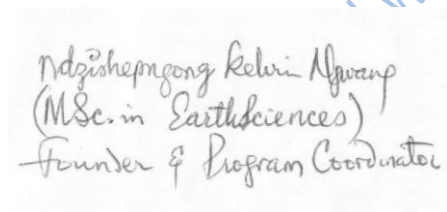 Ndzishepngong Kelvin Ngwang
(MSc. in Earth Sciences)
Founder & Program Coordinator